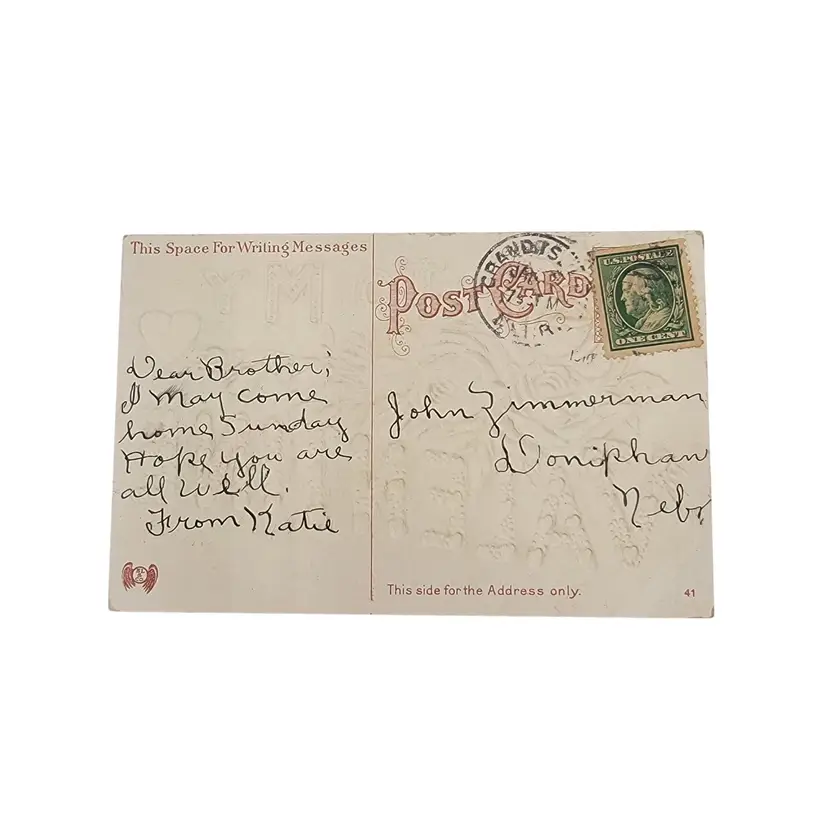 This Space For Writing Messages
POST CARD
GRAND IS
NEBR.
U.S. POSTAGE
ONE CENT
Dear Brother;
I may come
home Sunday
Hope you are
all well.
From Katie
John Zimmerman
Doniphan
Nebr
This side for the Address only.
41
TO MY
VALENTINE